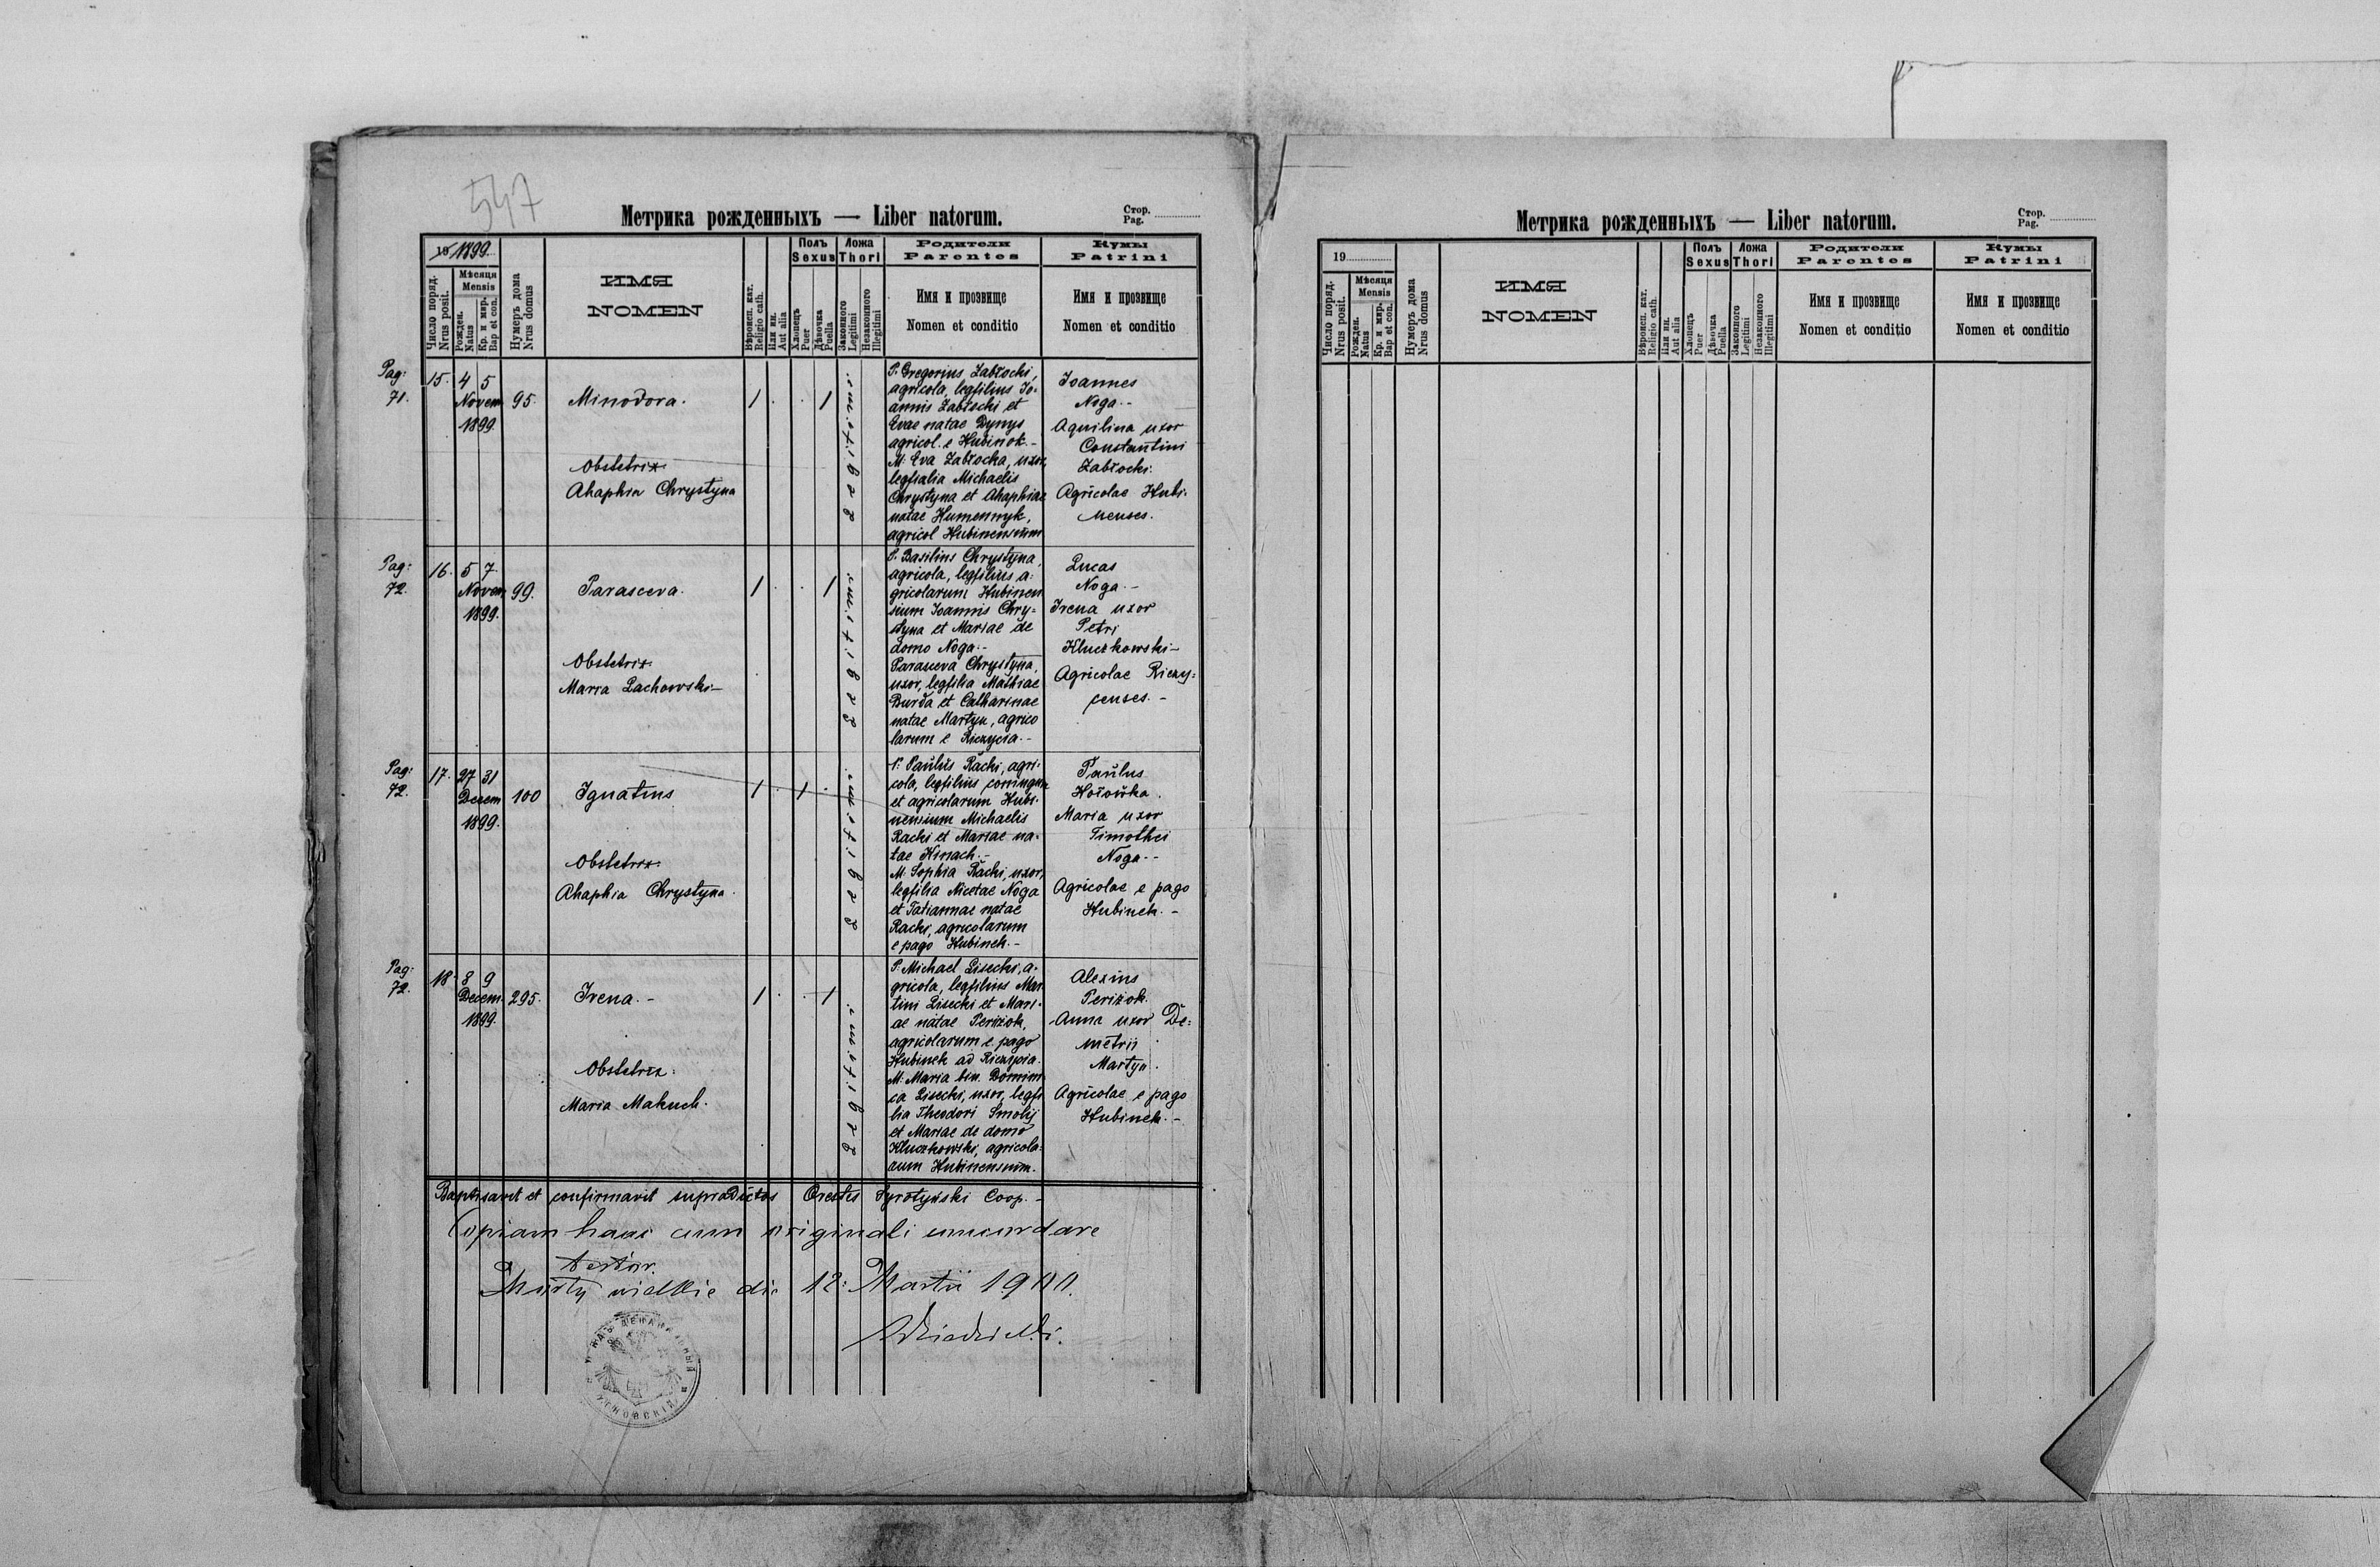 547
Метрика рожденныхъ — Liber natorum.
Стор.
Pag.
1899.
Число поряд.
Nrus posit.
Мѣсяця
Mensis
Рожден.
Natus
Кр. и мѵр.
Bap et con.
Нумеръ дома
Nrus domus
ИМЯ
NOMEN
Вѣроисп. кат.
Religio cath.
Или ин.
Aut alia
Полъ
Sexus
Хлопецъ
Puer
Дѣвочка
Puella
Ложа
Thori
Законного
Legitimi
Незаконного
Illegitimi
Родители
Parentes
Имя и прозвище
Nomen et conditio
Кумы
Patrini
Имя и прозвище
Nomen et conditio
Pag:
71.
15. 4 5
Novem
1899.
95.
Minodora.
Obstetrix
Ahaphia Chrystyna
1 . . 1
Legitimi
P. Gregorius Zabłocki,
agricola, legfilius Jo-
annis Zabłocki et
Evae natae Dynys
agricol. e Hubinok.-
M: Eva Zabłocka, uxor,
legfialia Michaelis
Chrystyna et Ahaphiae
natae Humennyk,
agricol Hubinensium
Joannes
Noga.-
Aquilina uxor
Constantini
Zabłocki.
Agricolae Hubi-
nenses.
Pag:
72.
16. 5 7.
Novem
1899.
99.
Parasceva.
Obstetrix
Maria Lachowski-
1 . . 1
P. Basilius Chrystyna,
agricola, legfilius a-
gricolarum Hubinen
sium Joannis Chry=
styna et Mariae de
domo Noga.-
Parasceva Chrystyna,
uxor, legfilia Mathiae
Burda et Catharinae
natae Martyn, agrico
larum e Riczycia.-
Lucas
Noga.-
Irena uxor
Petri
Kluczkowski-
Agricolae Riczy=
censes.-
Pag:
72.
17. 27 31
Decem
1899.
100
Ignatius
Obstetrix
Ahaphia Chrystyna.
1 . 1 .
P: Paulus Racki, agri-
cola, legfilius
et agricolarum Hubi-
nensium Michaelis
Racki et Mariae na-
tae Hinach.-
M: Sophia Racki, uxor,
legfilia Nicetae Noga
et Tatiannae natae
Racki, agricolarum
e pago Hubinek.-
Paulus
Hołowka.
Maria uxor
Timothei
Noga.-
Agricolae e pago
Hubinek.-
Pag:
72.
18. 8 9
Decem.
1899.
295.
Irena.-
Obstetrix:
Maria Makuch.
1 . . 1
P: Michael Lisecki, a-
gricola, legfilius Mar
tini Lisecki et Mari-
ae natae Perizok,
agricolarum e pago
Hubinek ad Riczycia.
M: Maria bin. Domini
ca Lisecki, uxor, legfi
lia Theodori Smolij
et Mariae de domo
Kluczkowski, agricola-
rum Hubinensium.
Alexius
Perizok.
Anna uxor De=
metrii
Martyn.
Agricolae e pago
Hubinek.-
Baptisavit et confirmavit supradictos Orestes Coop.-
Copiam hanc cum originali concordare
testor.
Mosty wielkie die 12: Martii 1900.
Метрика рожденныхъ — Liber natorum.
Стор.
Pag.
19
Число поряд.
Nrus posit.
Мѣсяця
Mensis
Рожден.
Natus
Кр. и мѵр.
Bap et con.
Нумеръ дома
Nrus domus
ИМЯ
NOMEN
Вѣроисп. кат.
Religio cath.
Или ин.
Aut alia
Полъ
Sexus
Хлопецъ
Puer
Дѣвочка
Puella
Ложа
Thori
Законного
Legitimi
Незаконного
Illegitimi
Родители
Parentes
Имя и прозвище
Nomen et conditio
Кумы
Patrini
Имя и прозвище
Nomen et conditio